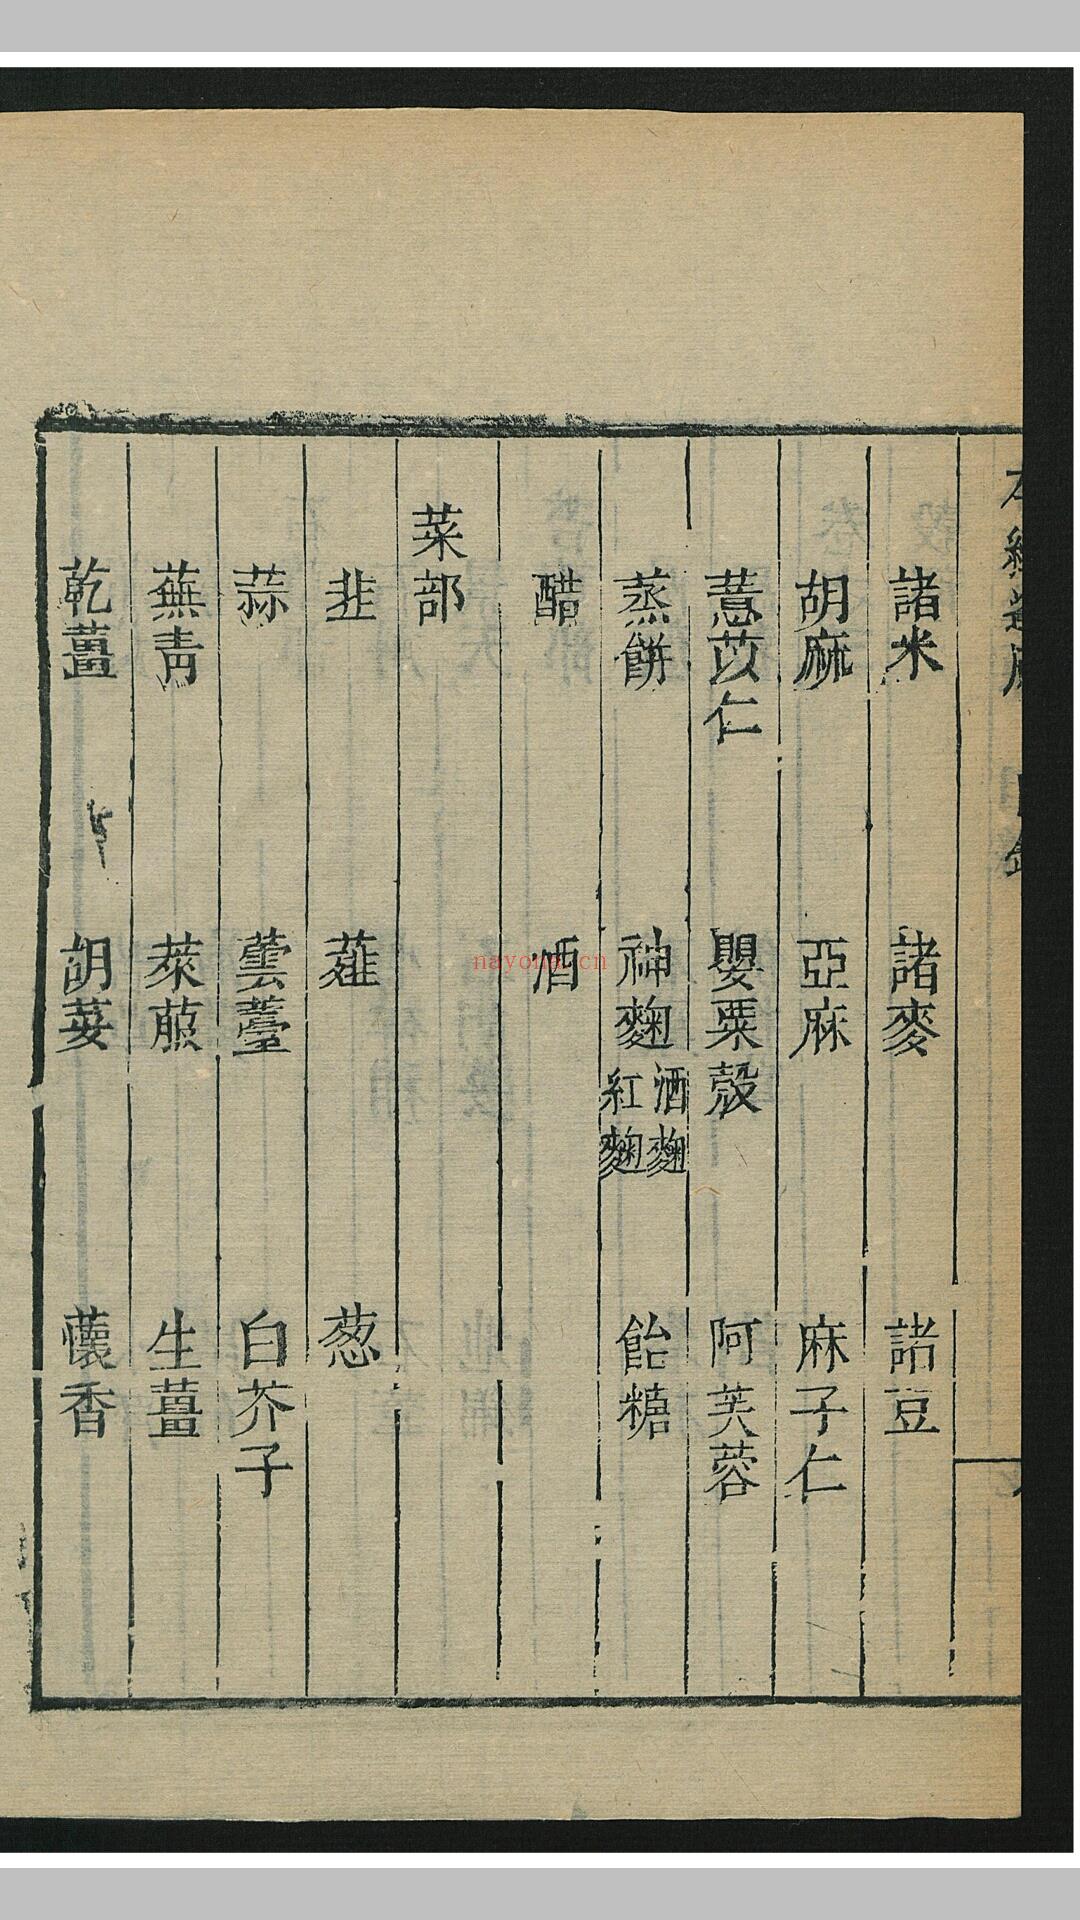 諸米 諸麥 諸豆
胡麻 亞麻 麻子仁
薏苡仁 罌粟殼 阿芙蓉
蒸餅 神麴 酒麴 紅麴 飴糖
醋 酒
菜部
韭 薤 葱
蒜 蕓薹 白芥子
蕪青 萊菔 生薑
乾薑 胡荽 懷香
nayona.cn